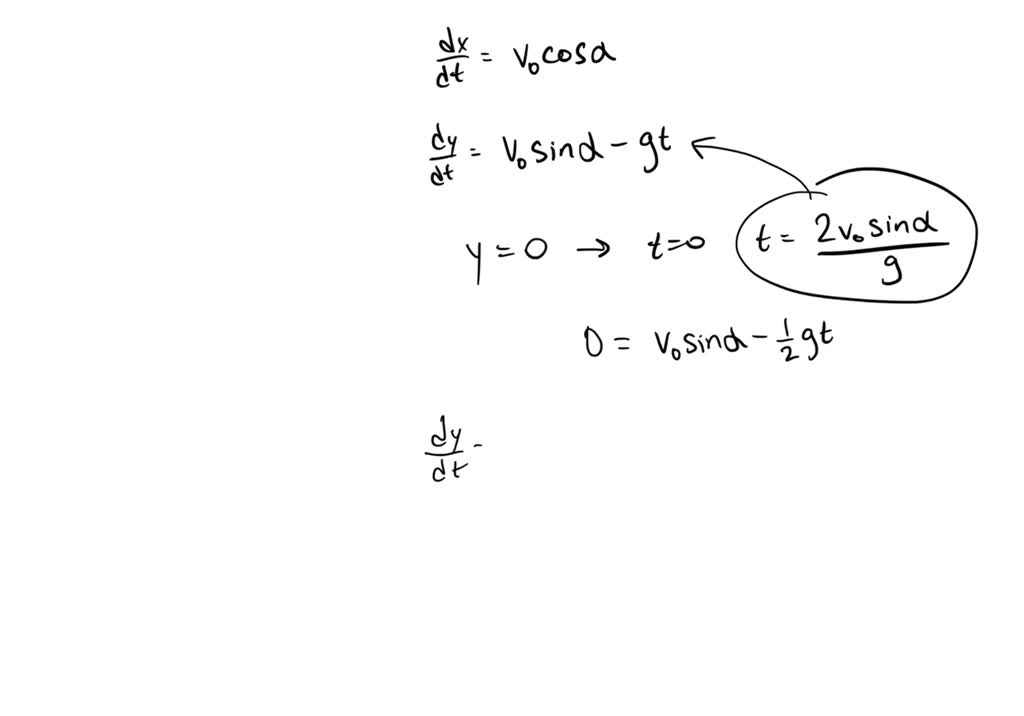 dx/dt = v₀cosα
dy/dt = v₀sinα - gt
y = 0 → t=0 t = 2v₀sinα/g
0 = v₀sinα - ½gt
dy/dt -